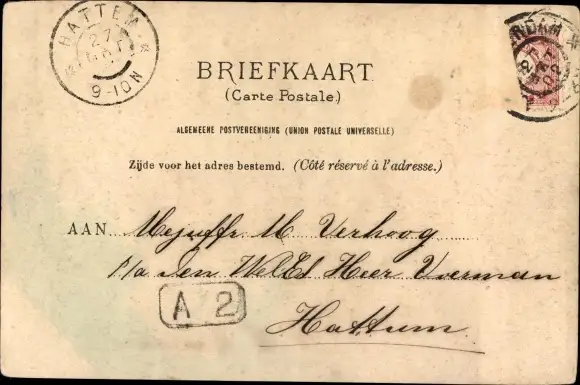 HATTEM
27
MRT
9-10N
RDAM
BRIEFKAART
(Carte Postale.)
ALGEMEENE POSTVEREENIGING (UNION POSTALE UNIVERSELLE)
Zijde voor het adres bestemd. (Côté réservé à l'adresse.)
AAN Mejuffr. M Verhoog
p/a den WelEd Heer Voerman
A 2
Hattum